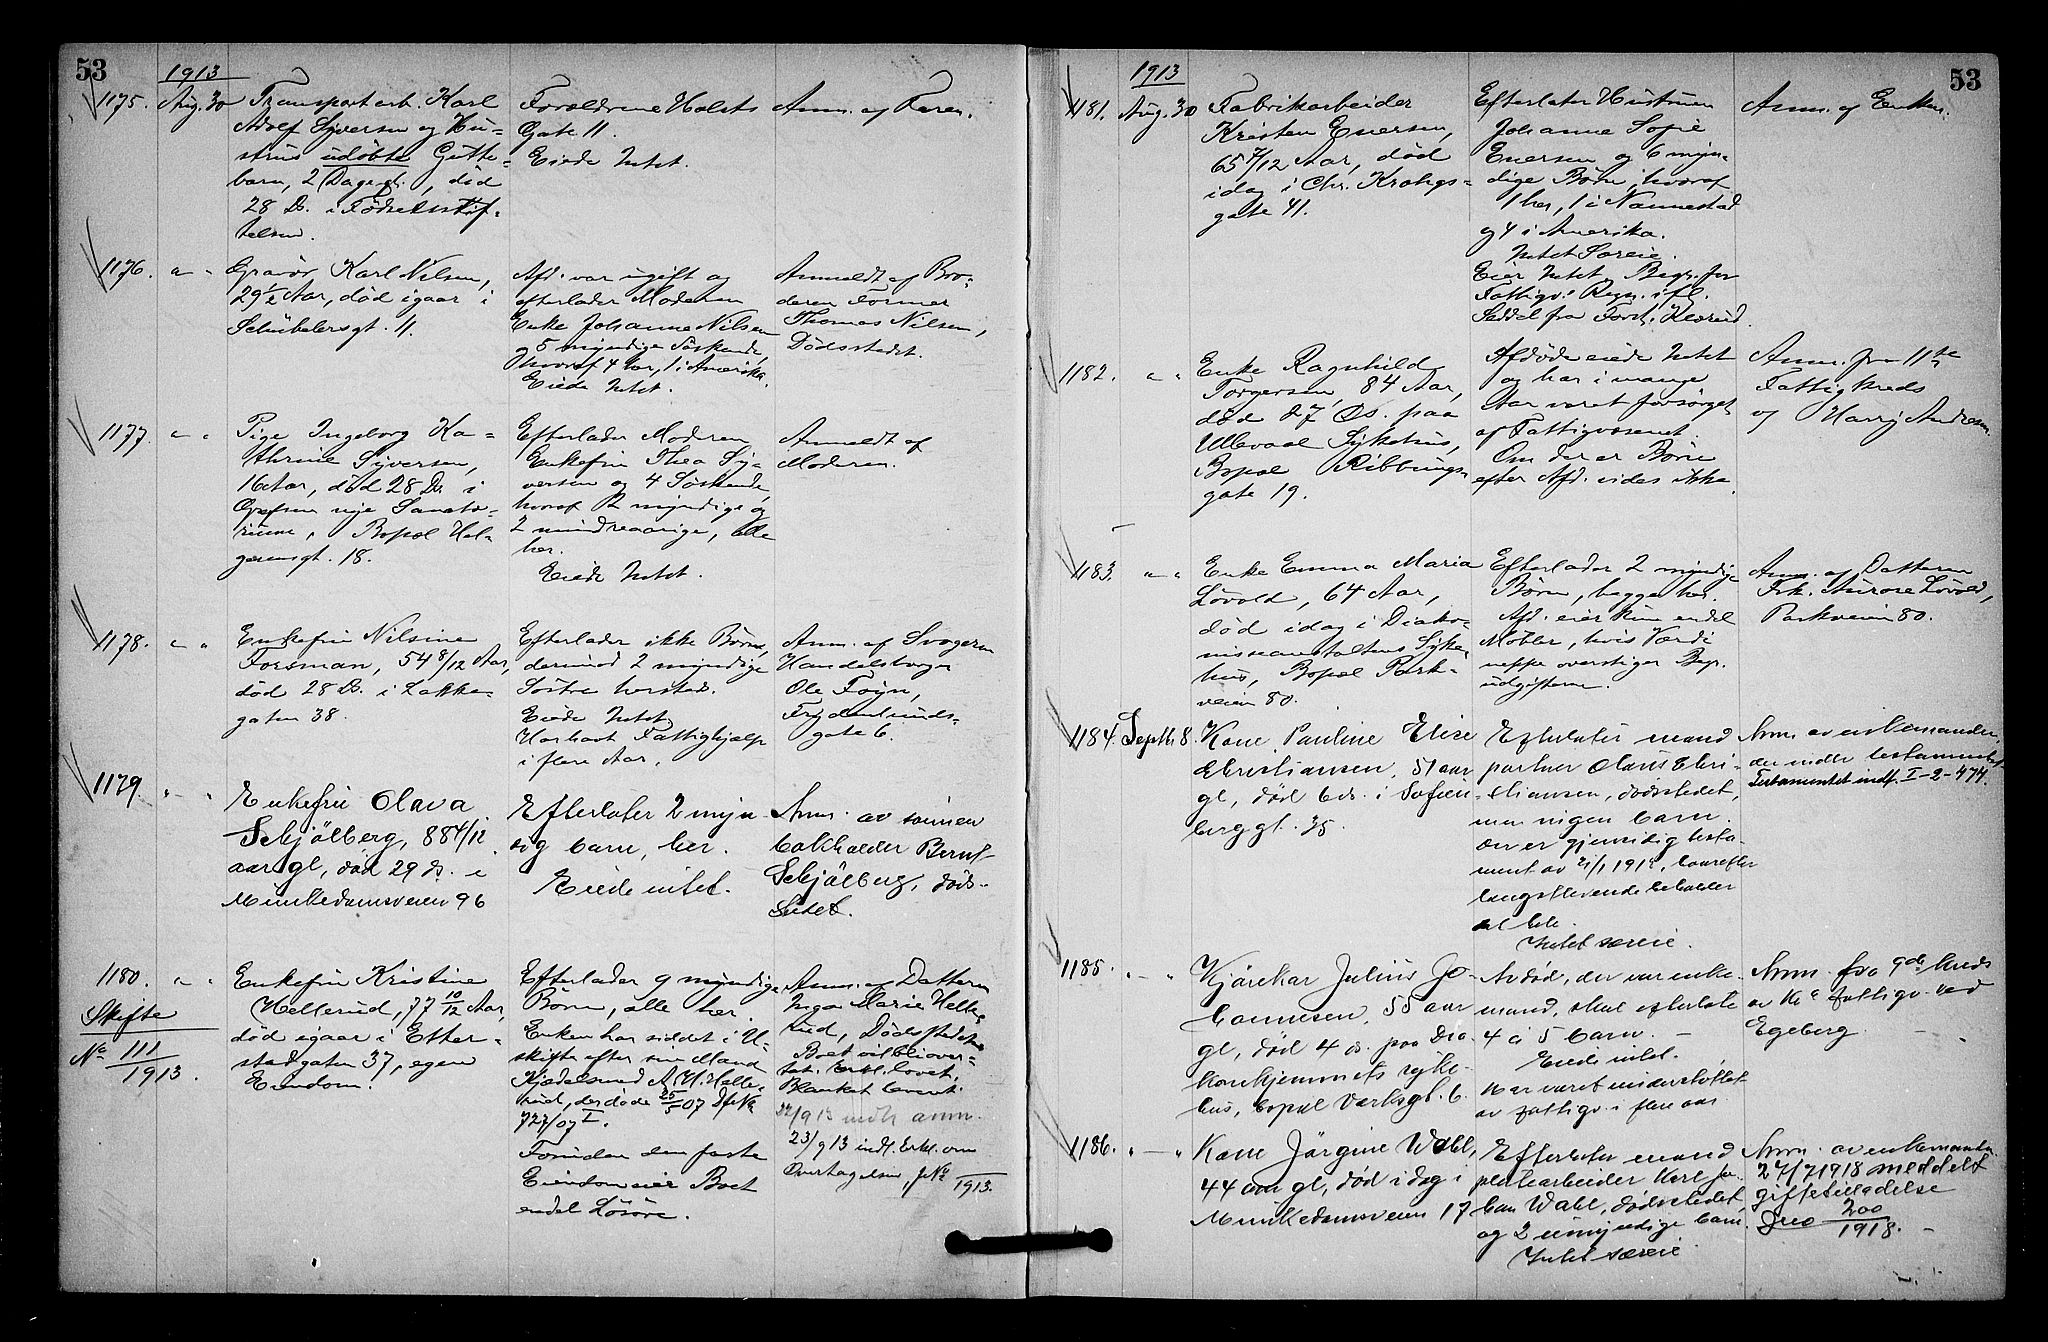 53
1913
1175. Aug. 30
Transportarb. Karl
Adolf Syversen og Hu-
strus udøbte Gutte-
barn, 2 Dage gl., død
28 Ds. i Fødselsstif-
telsen.
Forældrene Holsts
Gate 11.
Eiede Intet.
Anm. af Faren.
1176. " "
Gravør Karl Nilsen,
29½ Aar, død igaar i
Schübelersgt. 11.
Afd. var ugift og
efterlader Moderen
Enke Johanne Nilsen
og 5 myndige Søskende,
hvoraf 4 her, 1 i Amerika.
Eiede Intet.
Anmeldt af Bro-
deren Former
Thomas Nilsen,
Dødsstedet.
1177. " "
Pige Ingeborg Ka-
thrine Syversen,
16 Aar, død 28 Ds. i
Grefsen nye Sanato-
rium, Bopæl Hel-
gesensgt. 18.
Efterlader Moderen
Enkefru Thea Sy-
versen og 4 Søskende,
hvoraf 2 myndige og
2 mindreaarige, alle
her.
Eiede Intet.
Anmeldt af
Moderen.
1178. " "
Enkefru Nilsine
Forsman, 54 8/12 Aar,
død 28 Ds. i Lakke-
gaten 38.
Efterlader ikke Børn,
derimod 2 myndige
Søstre hersteds.
Eiede Intet,
Har havt Fattighjælp
i flere Aar.
Anm. af Svogeren
Handelsborger
Ole Foyn,
Frydenlunds-
gate 6.
1179 " "
Enkefru Olava
Schjölberg, 88 4/12
aar gl, död 29 ds. i
Munkedamsveien 96
Efterlater 2 myn-
dig barn, her.
Eiede intet.
Anm. av sönnen
bokholder Bernt
Schjölberg, döds-
stedet.
1180. " "
Skifte
No 111/1913.
Enkefru Kristine
Hellerud, 77 10/12 Aar,
død igaar i Etter-
stadgaten 37, egen
Eiendom.
Efterlader 9 myndige
Børn, alle her.
Enken har siddet i U-
skifte efter sin Mand
A. H. Helle-
rud, der døde 25/5 07
727/07 I.
Foruden den faste
Eiendom eier Boet
endel Løsøre.
Anm. af Datteren
Inga Marie Helle-
rud, Dødsstedet.
Boet vil bli over-
tat. Erkl. lovet,
Blanket levert.
22/9 13 indk. anm.
23/9 13 indl. Erkl. om
Overtagelsen, JNo /1913.
53
1913
1181. Aug. 30
Fabrikarbeider
Kristen Enersen,
65 7/12 Aar, død
idag i Chr. Krohgs-
gate 41.
Efterlater Hustruen
Johanne Sofie
Enersen og 6 myn-
dige Børn, hvoraf
1 her, 1 i Nannestad
og 4 i Amerika.
Intet Særeie.
Eier Intet. Begr. for
Fattigv. Regn. ifl.
Seddel fra Forst.
Anm. af Enken.
1182. " "
Enke Ragnhild
Torgersen, 84 Aar,
død 27 Ds. paa
Ullevaal Sykehus,
Bopæl Ribbungs-
gate 19.
Afdøde eiede Intet
og har i mange
Aar været forsørget
af Fattigvæsenet.
Om der er Børn
efter Afd. vides ikke.
Anm. fra 11te
Fattigkreds
og Harry Andresen.
1183. " "
Enke Emma Maria
Løvold, 64 Aar,
død idag i Diako-
nisseanstaltens Syke-
hus, Bopæl Park-
veien 80.
Efterlader 2 myndige
Børn, begge her.
Afd. eier kun endel
Møbler, hvis Værdi
neppe overstiger Begr.
udgifterne.
Anm. af Datteren
Frk. Aurora Løvold,
Parkveien 80.
1184. Septb 8.
Kone Pauline Elise
Christiansen, 51 aar
gl, död 6 ds. i Sofien-
berggt. 35.
Efterlater mand
Olaus Chri-
stiansen, dödsstedet,
men ingen barn.
Der er gjensidig testa-
ment av 21/1 1913, hvorefter
længstlevende beholder
alt hele.
Intet særeie.
Anm. av enkemanden,
der indlev. testamentet
Testamentet indf. I-2-474.
1185. " "
Kjörekar Julius Jo-
hannesen, 55 aar
gl, död 4 ds. paa Dia-
konhjemmets syke-
hus, bopæl Verksgt. 6.
Avdöde, der var enke-
mand, skal efterlate
4 a 5 barn.
Eiede intet.
Har været understöttet
av fattigv. i flere aar.
Anm. fra 9de kreds
av Ka fattigv. ved
Egeberg.
1186. " "
Kone Jörgine Wahl,
44 aar gl, död idag i
Munkedamsveien 17
Efterlater mand
platearbeider Karl Jo-
han Wahl, dödsstedet,
og 2 umyndige barn.
Intet særeie
Anm. av enkemanden
27/7 1918 meddelt
giftetilladelse
Jno 200/1918.